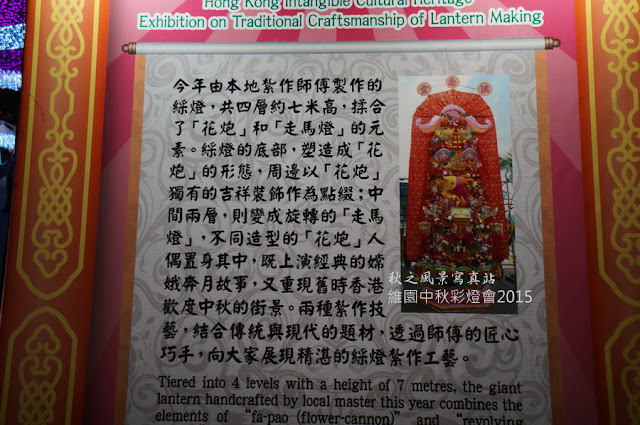 Hong Kong Intangible Cultural Heritage
Exhibition on Traditional Craftsmanship of Lantern Making
今年由本地紮作師傅製作的
綵燈，共四層約七米高，揉合
了「花炮」和「走馬燈」的元
素。綵燈的底部，塑造成「花
炮」的形態，周邊以「花炮」
獨有的吉祥裝飾作為點綴；中
間兩層，則變成旋轉的「走馬
燈」，不同造型的「花炮」人
偶置身其中，既上演經典的嫦
娥奔月故事，又重現舊時香港
歡度中秋的街景。兩種紮作技
藝，結合傳統與現代的題材，透過師傅的匠心
巧手，向大家展現精湛的綵燈紮作工藝。
秋之風景寫真站
維園中秋彩燈會2015
Tiered into 4 levels with a height of 7 metres, the giant
lantern handcrafted by local master this year combines the
elements of “fa-pao (flower-cannon)” and “revolving